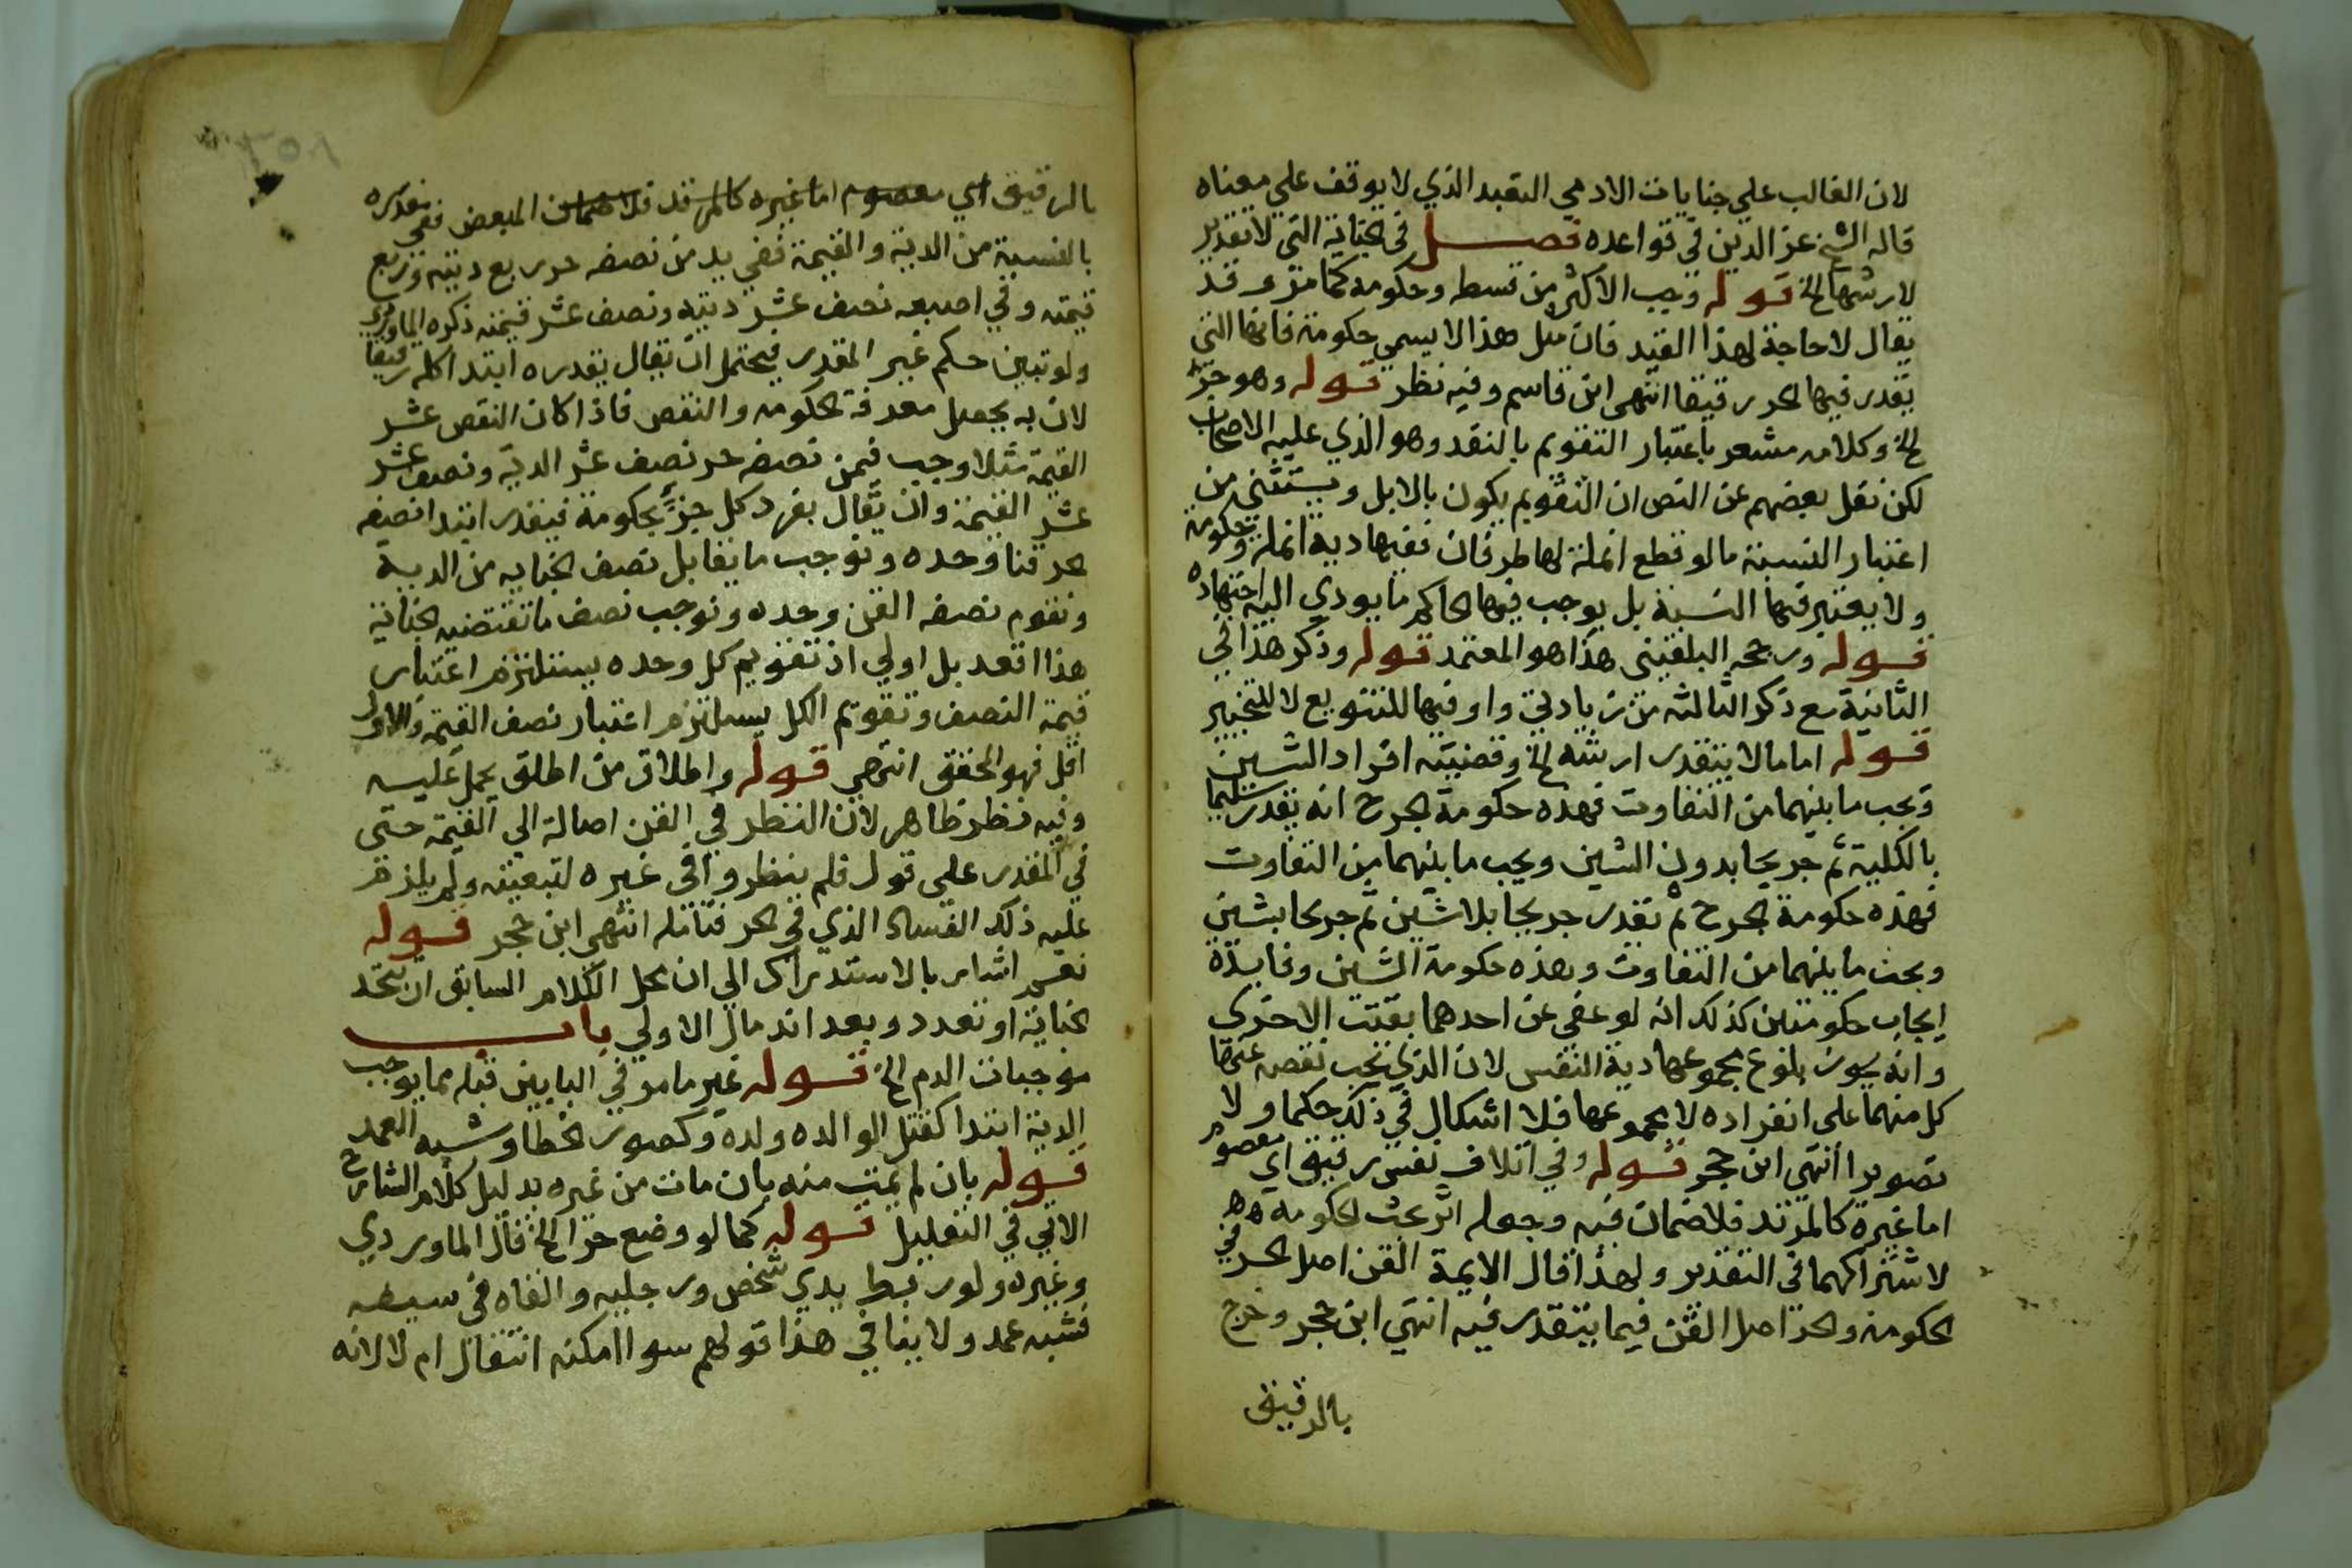 لان الغالب علي جنايات الادمي التعبد الذي لا يوقف علي معناه
قاله الشيخ عز الدين في قواعده فصل في الجناية التي لا تقدير
لارشها الخ قوله وجب الاكثر من قسط وحكومة كما مر وقد
يقال لا حاجة لهذا القيد فان مثل هذا لا يسمي حكومة فانها التي
يقدر فيها الحر رقيقا انتهى ابن قاسم وفيه نظر قوله وهو جزء
الخ وكلامه مشعر باعتبار التقويم بالنقد وهو الذي عليه الاصحاب
لكن نقل بعضهم عن النص ان التقويم يكون بالابل ويستثني من
اعتبار النسبة ما لو قطع انملة لها طرفان ففيها دية انملة وحكومة
ولا يعتبر فيها النسبة بل يوجب فيها الحاكم ما يودي اليه اجتهاده
قوله ورجحه البلقيني هذا هو المعتمد قوله وذكر هذا في
الثانية مع ذكر الثالثة من زيادتي واو فيها للتنويع لا للتخيير
قوله اما ما لا يتقدر ارشه الخ وقضيته افراد الشين
ويجب ما بينهما من التفاوت فهذه حكومة الجرح انه يقدر سليما
بالكلية ثم جريحا بدون الشين ويجب ما بينهما من التفاوت
فهذه حكومة الجرح ثم نقدر جريحا بلا شين ثم جريحا بشين
ويجب ما بينهما من التفاوت وهذه حكومة الشين وفايدة
ايجاب حكومتين كذلك انه لو عفي عن احدهما بقيت الاخرى
وانه يجوز بلوغ مجموعها دية النفس لان الذي يجب نقصه عنها
كل منهما على انفراده لا مجموعها فلا اشكال في ذلك حكما ولا
تصويرا انتهي ابن حجر قوله وفي اتلاف نفس رقيق اي معصوم
اما غيره كالمرتد فلا ضمان فيه وجعله اثر بحث الحكومة
لاشتراكهما في التقدير ولهذا قال الايمة القن اصل الحر في
الحكومة والحر اصل القن فيما يتقدر فيه انتهي ابن حجر وخرج
بالرقيق
بالرقيق اي معصوم اما غيره كالمرتد فلا ضمان المبعض ففي مقدره
بالنسبة من الدية والقيمة ففي يد من نصفه حر ربع ديته وربع
قيمته وفي اصبعه نصف عشر ديته ونصف عشر قيمته ذكره الماوردي
ولو تبين حكم غير المقدر فيحتمل ان يقال يقدره ابتدا كله رقيقا
لان به يحصل معرفة الحكومه والنقص فاذا كان النقص عشر
القيمة مثلا وجب فيمن نصفه حر نصف عشر الدية ونصف عشر
عشر القيمة وان يقال يفرد كل جزء بحكومة فيقدر ابتدا نصفه
الحر قنا وحده ونوجب ما يقابل نصف الجنايه من الدية
ونقوم نصفه القن وحده ونوجب نصف ما تقتضيه الجناية
هذا اقعد بل اولي اذ تقويم كل وحده يستلزم اعتبار
قيمة النصف وتقويم الكل يستلزم اعتبار نصف القيمة والاول
اقل فهو المحقق انتهي قوله واطلاق من اطلق يحمل عليه
وفيه نظر ظاهر لان النظر في القن اصالة الي القيمة حتى
في المقدر على قول فلم ينظروا في غيره لتبعيته ولم يلزم
عليه ذلك الفساد الذي في الحر فتامله انتهي ابن حجر قوله
نعم اشار بالاستدراك الي ان محل الكلام السابق ان تتحد
الجناية او تعدد وبعد اندمال الاولي باب
موجبات الدم الخ قوله غير ما مر في البابين قبله مما يوجب
الدية ابتدا كقتل الوالد ولده وكصور الخطا وشبه العمد
قوله بان لم يمت منه بان مات من غيره بدليل كلام الشارح
الاتي في التعليل قوله كما لو وضع حرا الخ قال الماوردي
وغيره ولو ربط يدي شخص ورجليه والقاه في سبعه
فشبه عمد ولا ينافي هذا قولهم سوا امكنه انتقال ام لا لانه